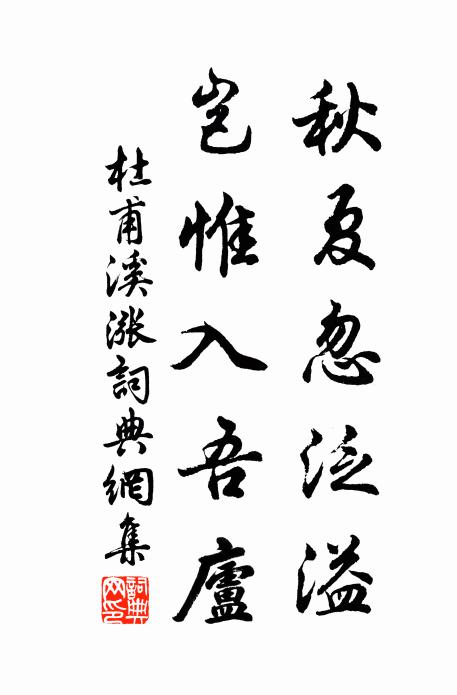 秋夏忽泛溢
岂惟入吾廬
杜甫溪漲詞典網集
詞典网印